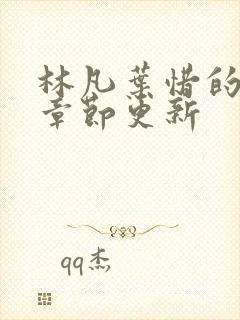 林凡葉惜的
章節更新
qq杰